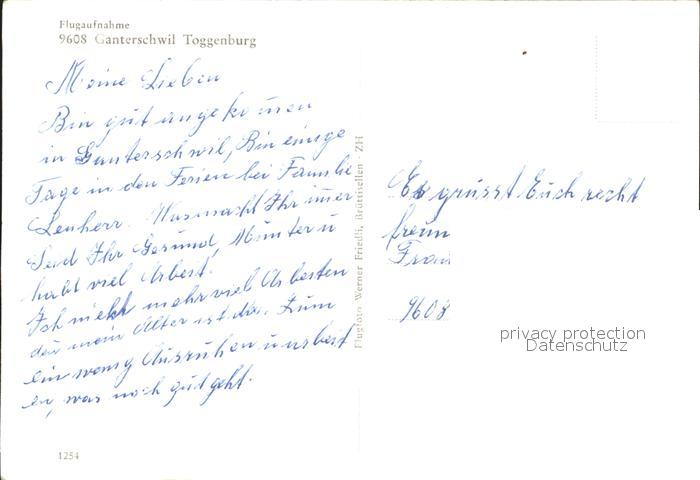 Flugaufnahme
9608 Ganterschwil Toggenburg
Meine Lieben
Bin gut angekommen
in Ganterschwil, Bin einige
Tage in den Ferien bei Familie
Lenherr. Was macht Ihr immer
Seid Ihr Gesund, Munter u
habt viel Arbeit.
Ich nicht mehr viel Arbeiten
den mein Alter ist da. Zum
ein wenig Ausruhen u arbeit
en, was noch gut geht.
1254
Flugfoto Werner Friedli, Brüttisellen - ZH
Es grüsst Euch recht
freun
Frau
9608
privacy protection
Datenschutz